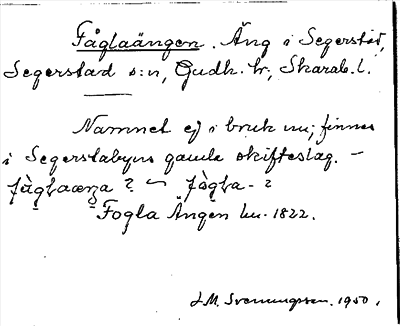 Fåglaängen. Äng i Segerstad,
Segerstad s:n, Gudh. hr, Skarab. l.
Namnet ej i bruk nu; finnes
i Segerstabyns gamla skifteslag. –
? ~ ?
Fogla Ängen hu. 1822.
J. M. Svennungsson. 1950.